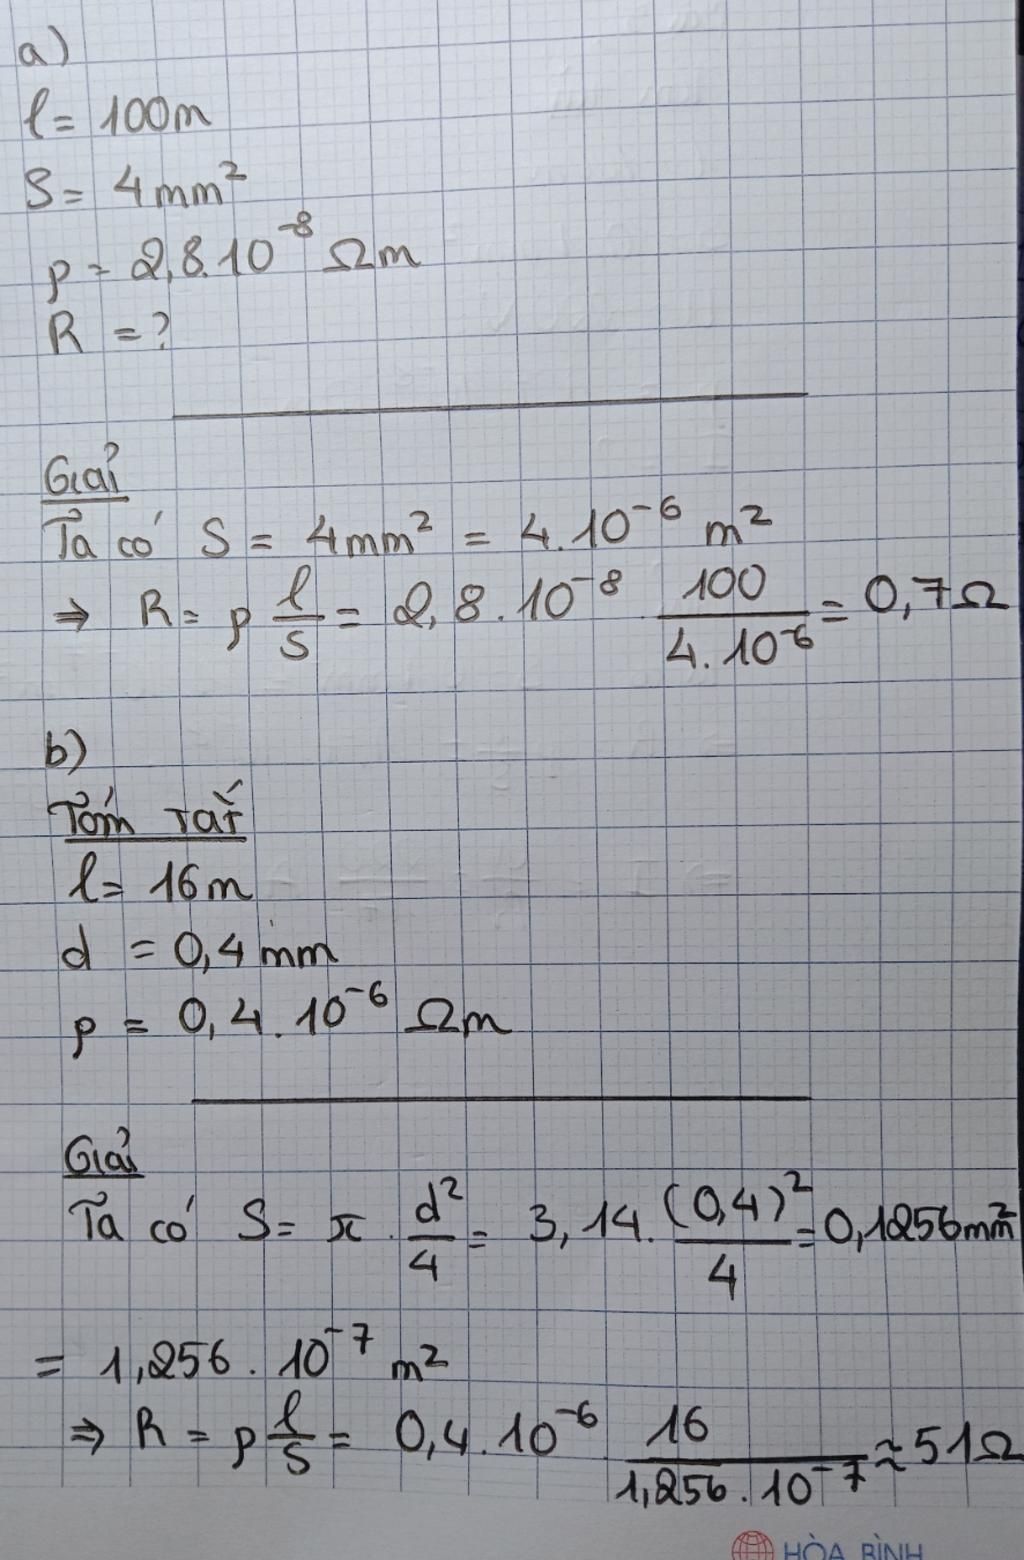 a)
l = 100m
S = 4mm²
ρ = 2,8.10⁻⁸ Ωm
R = ?
Giải
Ta có S = 4mm² = 4.10⁻⁶ m²
⇒ R = ρ l/S = 2,8.10⁻⁸ 100/4.10⁻⁶ = 0,7Ω
b)
Tóm tắt
l = 16m
d = 0,4mm
ρ = 0,4.10⁻⁶ Ωm
Giải
Ta có S = π . d²/4 = 3,14. (0,4)²/4 = 0,1256mm²
= 1,256 . 10⁻⁷ m²
⇒ R = ρ l/S = 0,4.10⁻⁶ 16/1,256.10⁻⁷ ≈ 51Ω
HÒA BÌNH